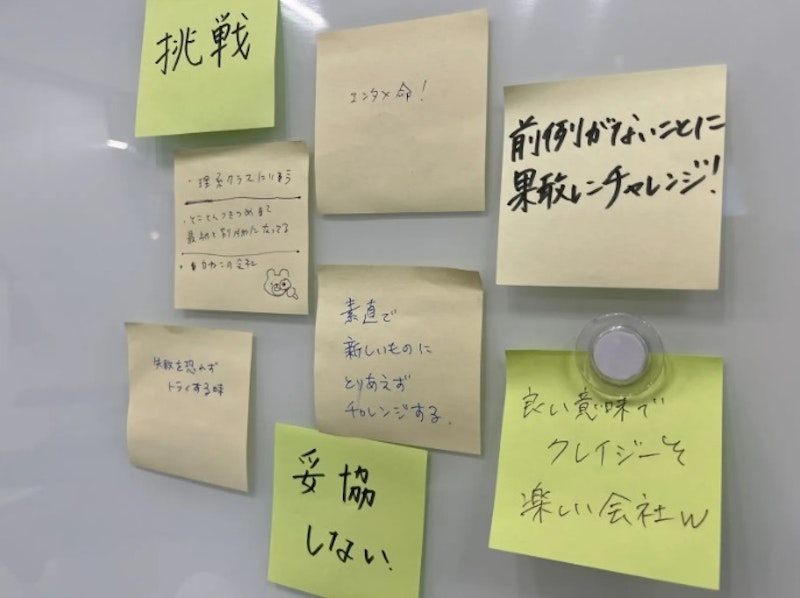 挑戦
エンタメ命！
前例がないことに
果敢にチャレンジ！
・理系クラスにいそう
・とことんつきつめすぎて
最初と別物になってる
の会社
素直で
新しいものに
とりあえず
チャレンジする．
失敗を恐れず
トライする
妥協
しない．
良い意味で
クレイジーで
楽しい会社w